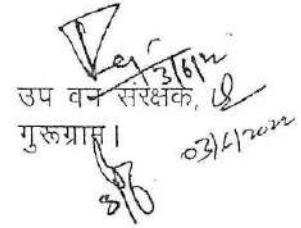 3/6/22
उप वन संरक्षक,
गुरूग्राम।
03/6/2022